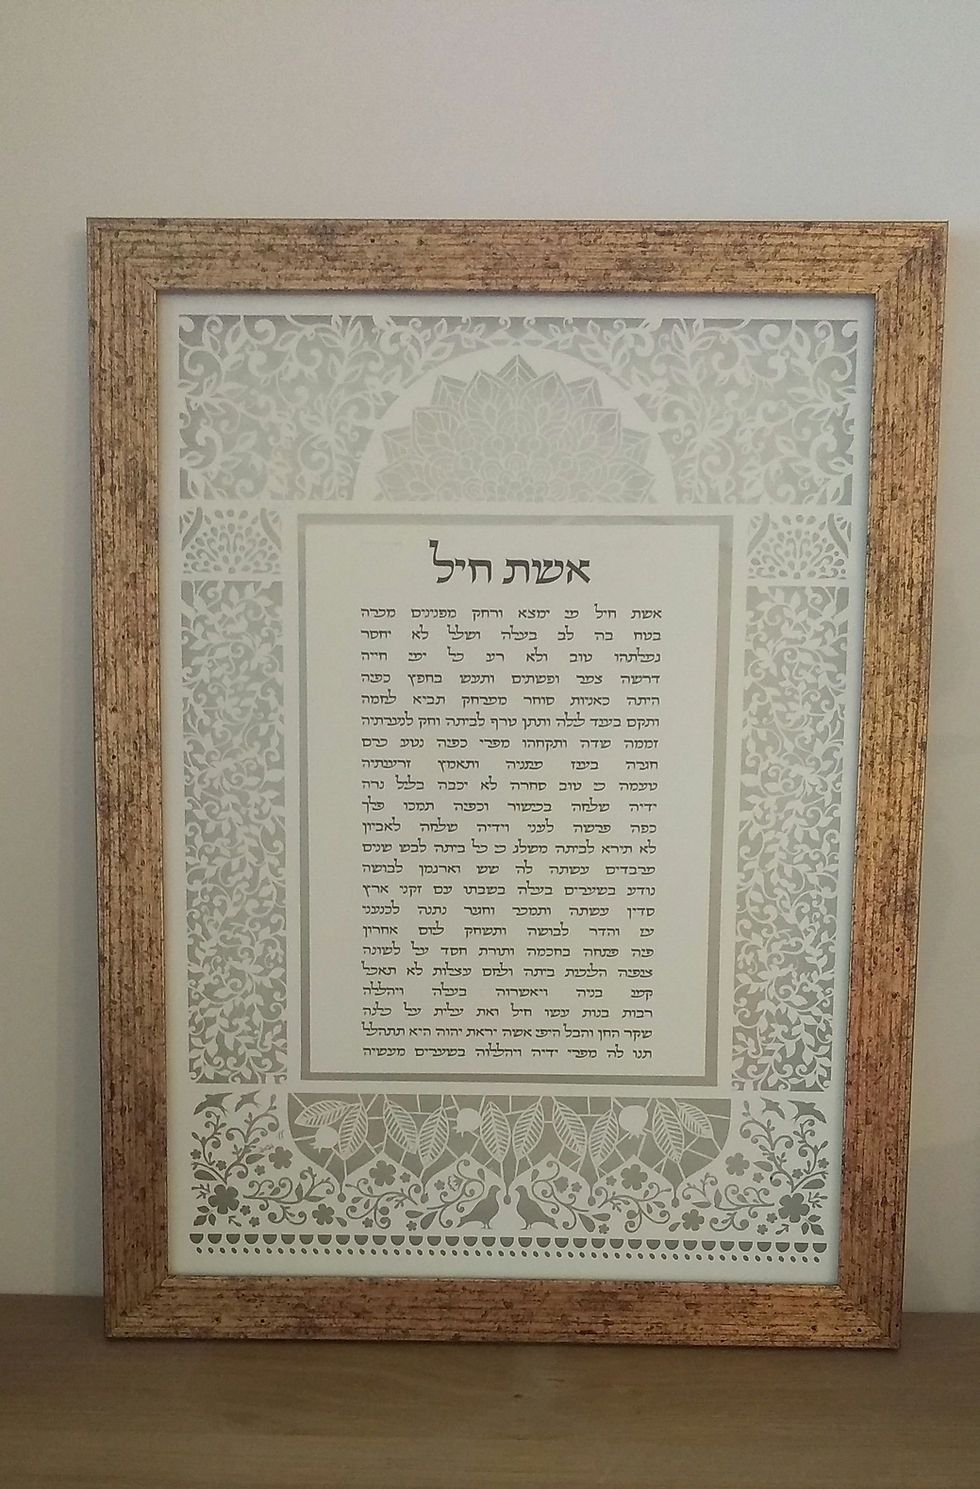 אשת חיל
אשת חיל מי ימצא ורחק מפנינים מכרה
בטח בה לב בעלה ושלל לא יחסר
גמלתהו טוב ולא רע כל ימי חייה
דרשה צמר ופשתים ותעש בחפץ כפיה
היתה כאניות סוחר ממרחק תביא לחמה
ותקם בעוד לילה ותתן טרף לביתה וחק לנערתיה
זממה שדה ותקחהו מפרי כפיה נטע כרם
חגרה בעוז מתניה ותאמץ זרעותיה
טעמה כי טוב סחרה לא יכבה בליל נרה
ידיה שלחה בכישור וכפיה תמכו פלך
כפה פרשה לעני וידיה שלחה לאביון
לא תירא לביתה משלג כי כל ביתה לבש שנים
מרבדים עשתה לה שש וארגמן לבושה
נודע בשערים בעלה בשבתו עם זקני ארץ
סדין עשתה ותמכר וחגור נתנה לכנעני
עז והדר לבושה ותשחק ליום אחרון
פיה פתחה בחכמה ותורת חסד על לשונה
צופיה הליכות ביתה ולחם עצלות לא תאכל
קמו בניה ויאשרוה בעלה ויהללה
רבות בנות עשו חיל ואת עלית על כלנה
שקר החן והבל היופי אשה יראת יהוה היא תתהלל
תנו לה מפרי ידיה ויהללוה בשערים מעשיה